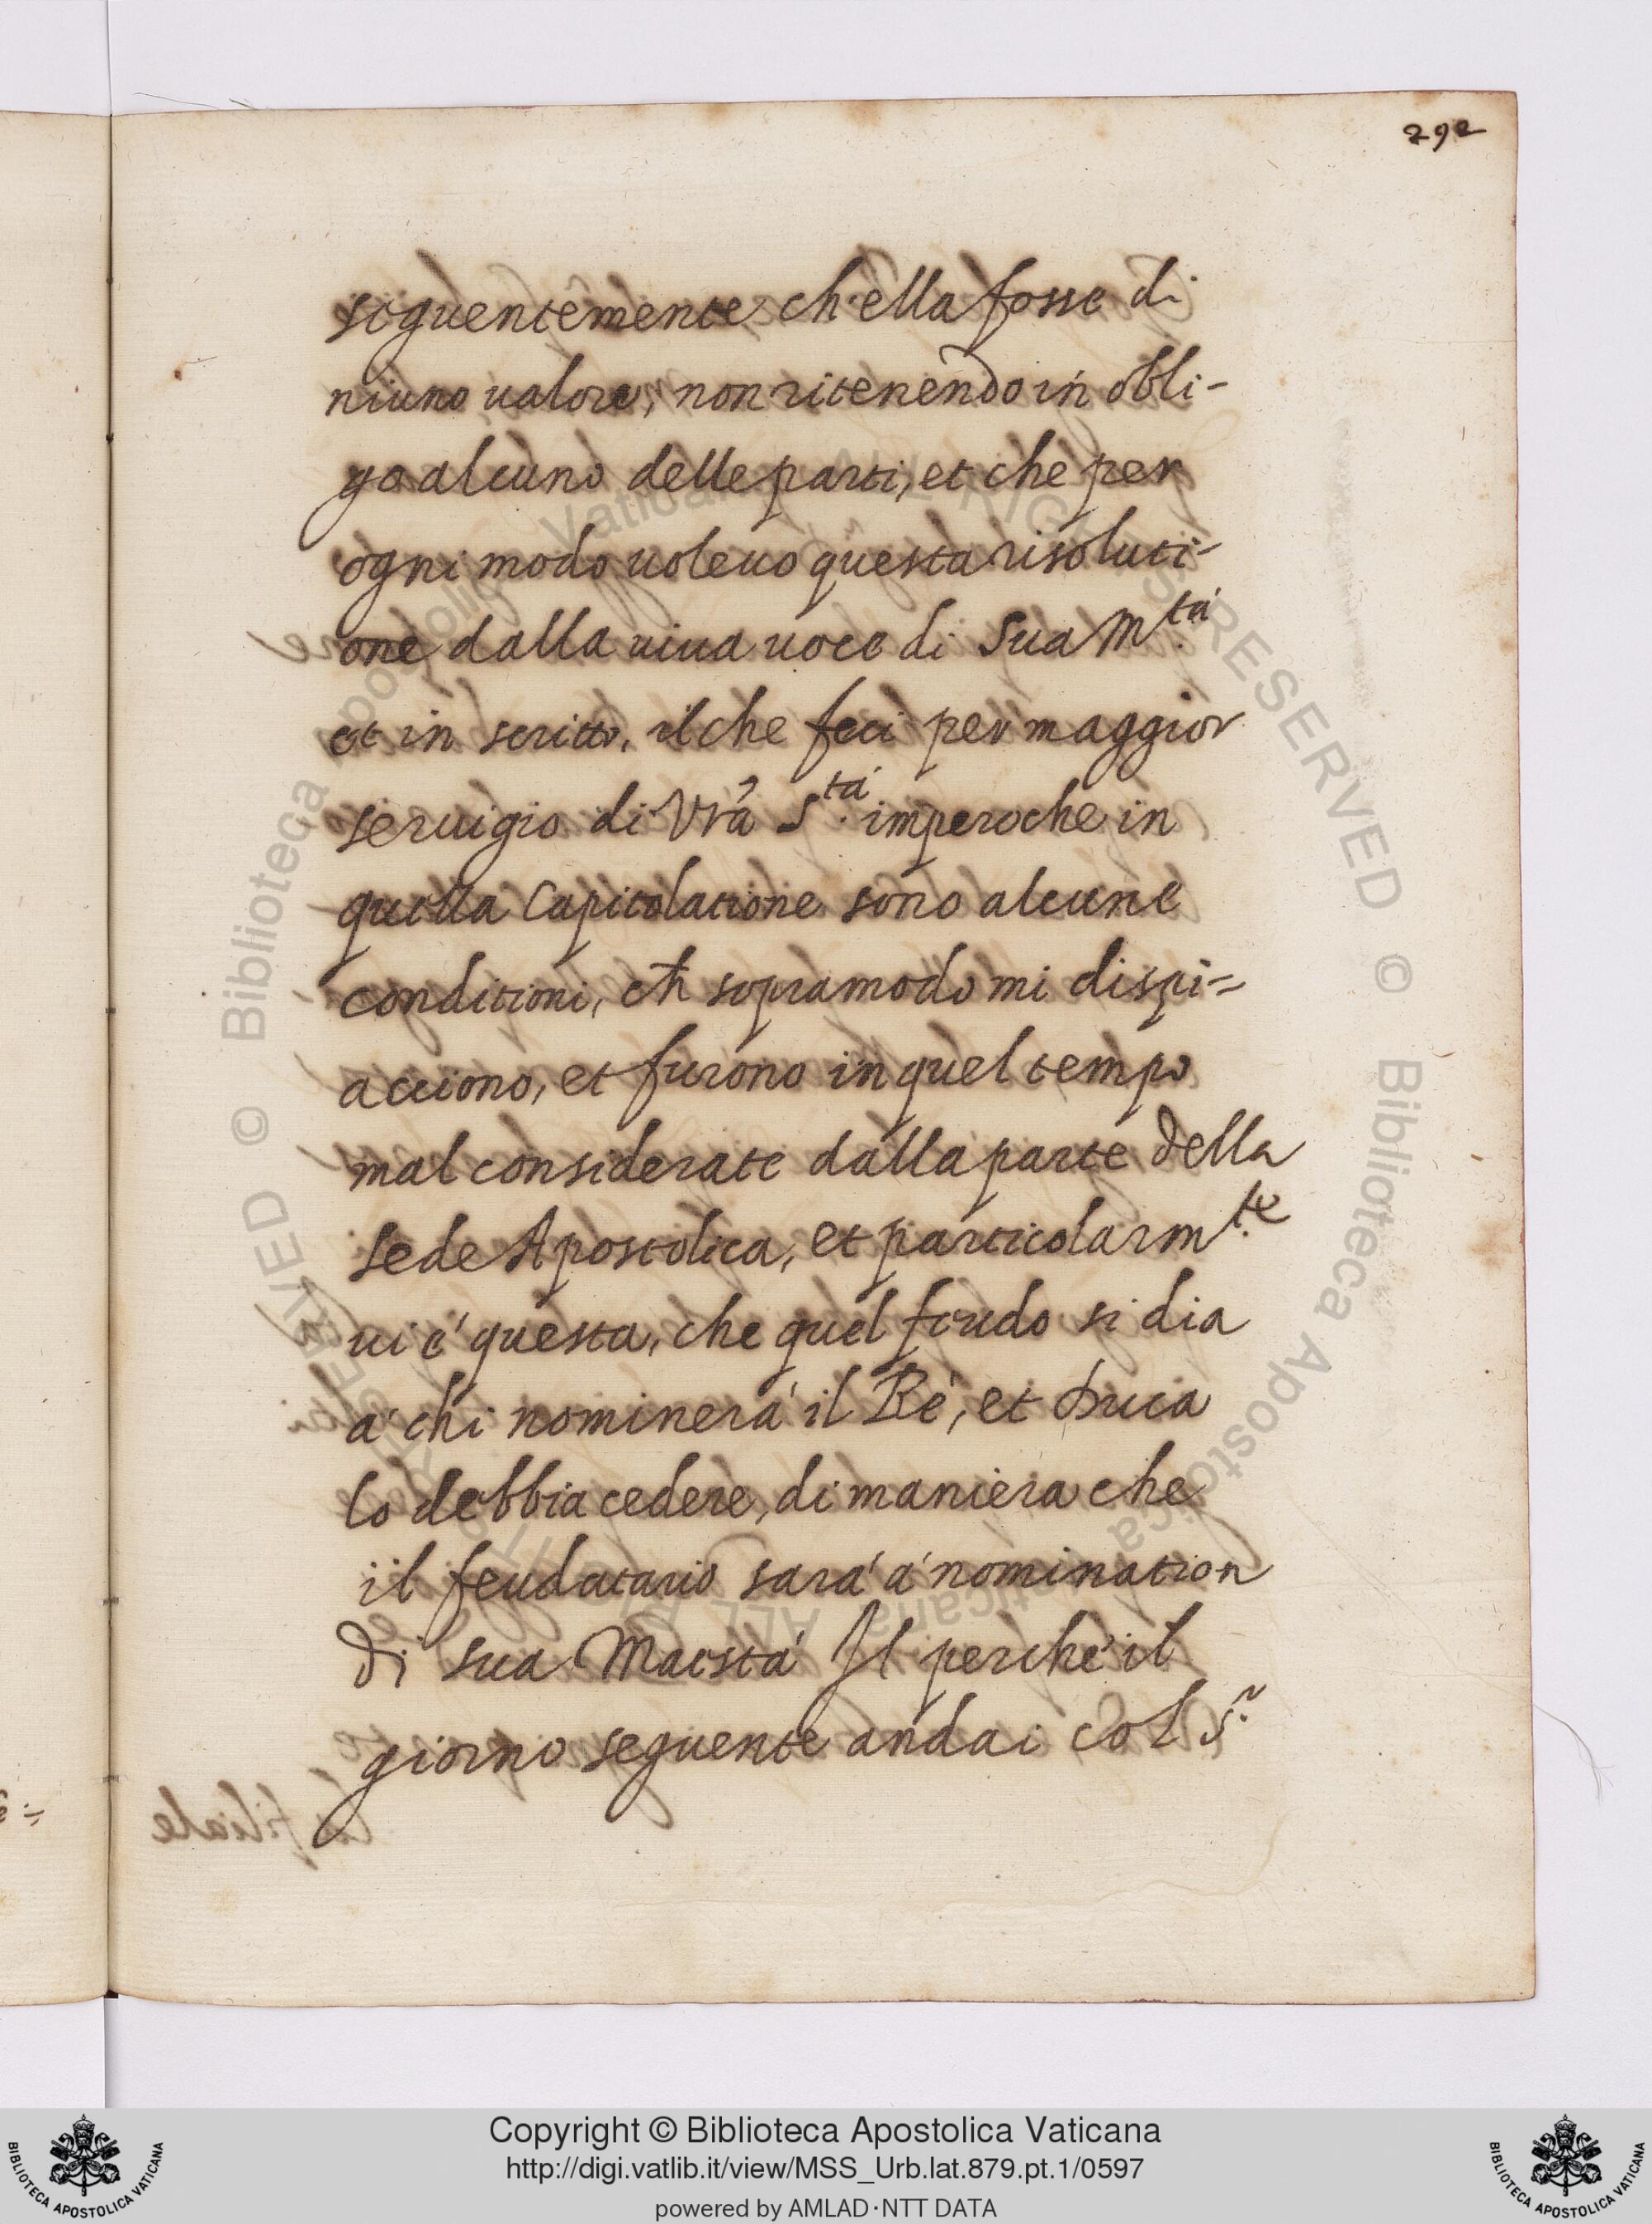 292
seguentemente ch'ella fosse di
niuno ualore, non ritenendo in obli-
go alcuno delle parti, et che per
ogni modo uoleuo questa risoluti-
one dalla uiua uoce di Sua M.tá
et in scritto, il che feci per maggior
seruigio di Vrã S.tá imperoche in
quella Capitolatione sono alcune
conditioni, cħ sopramodo mi dispi-
acciono, et furono in quel tempo
mal considerate dalla parte della
sede Apostolica, et particolarm.te
ui é questa, che quel feudo si dia
á chi nominerá il Rè, et Duca
lo debbia cedere, di maniera che
il feudatario sará á nomination
di sua Maestá Il perche il
giorno seguente andai col S.r
Copyright © Biblioteca Apostolica Vaticana
http://digi.vatlib.it/view/MSS_Urb.lat.879.pt.1/0597
powered by AMLAD·NTT DATA
BIBLIOTECA APOSTOLICA VATICANA
BIBLIOTECA APOSTOLICA VATICANA